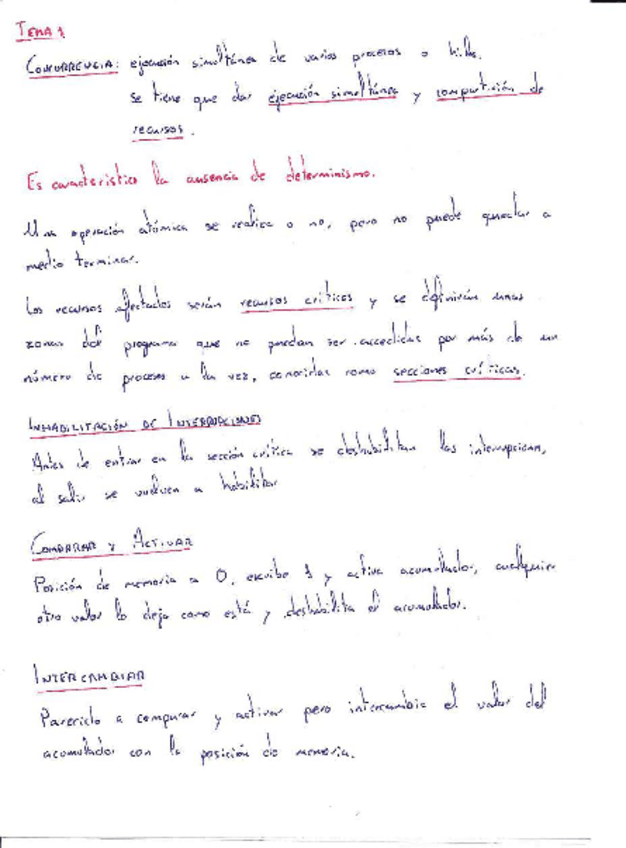 TEMA 1
CONCURRENCIA: ejecución simultánea de varios procesos o hilos.
se tiene que dar ejecución simultánea y compartición de
recursos.
Es característico la ausencia de determinismo.
Una operación atómica se realiza o no, pero no puede quedar a
medio terminar.
Los recursos afectados serán recursos críticos y se definirán unas
zonas del programa que no puedan ser accedidas por más de un
número de procesos a la vez, conocidas como secciones críticas.
INHABILITACIÓN DE INTERRUPCIONES
Antes de entrar en la sección crítica se deshabilitan las interrupciones,
al salir se vuelven a habilitar
COMPARAR Y ACTIVAR
Posición de memoria a 0, escribe 1 y activa acumulador, cualquier
otro valor lo deja como está y deshabilita el acumulador.
INTERCAMBIAR
Parecido a comparar y activar pero intercambia el valor del
acumulador con la posición de memoria.